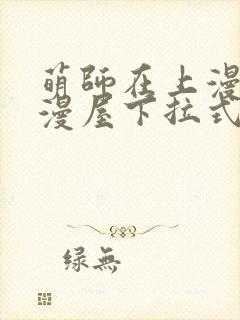 萌師在上漫
漫屋下拉式
绿無